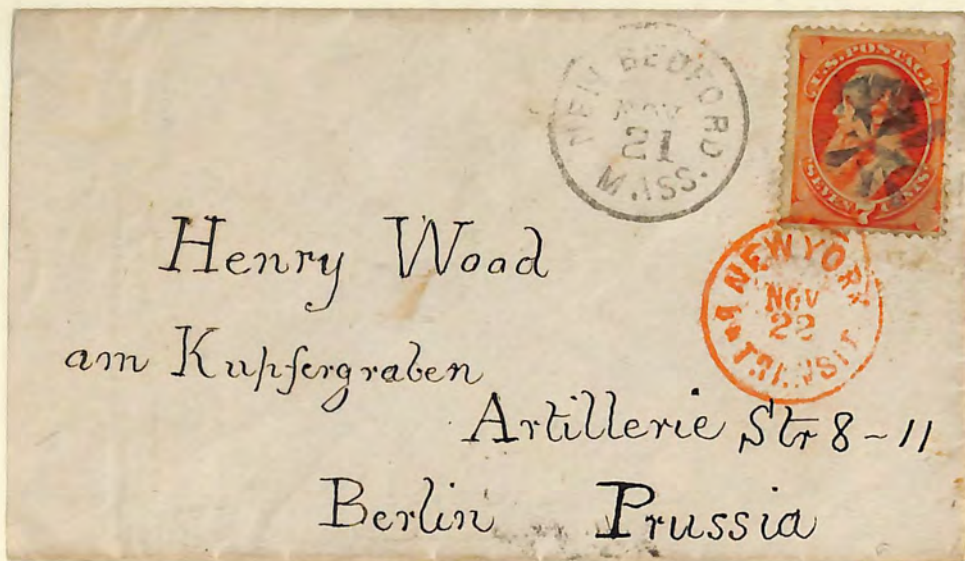 NEW BEDFORD
NOV
21
MASS.
U.S. POSTAGE
SEVEN 7 CENTS
NEW YORK
NOV
22
TRANSIT
Henry Wood
am Kupfergraben
Artillerie Str 8-11
Berlin Prussia